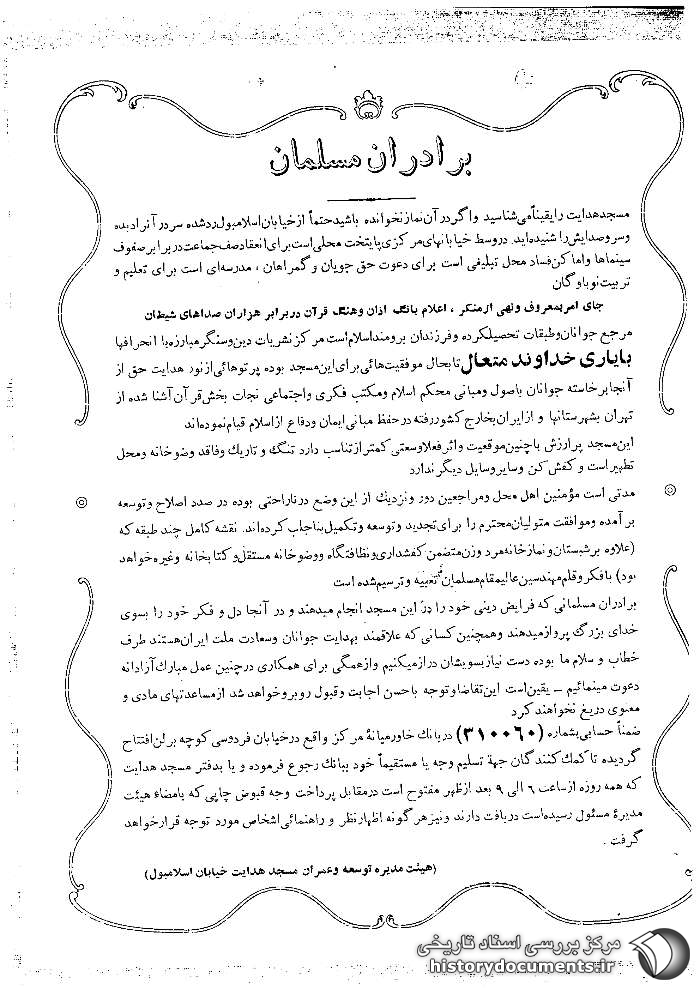 برادران مسلمان
مسجد هدایت را یقیناً می‌شناسید و اگر در آن نماز نخوانده باشید حتماً از خیابان اسلامبول رد شده سر در آنرا دیده
و سر و صدایش را شنیده‌اید. در وسط خیابانهای مرکزی پایتخت محلی است برای انعقاد صف جماعت در برابر صفوف
سینماها و اماکن فساد محل تبلیغی است برای دعوت حق جویان و گمراهان ، مدرسه‌ای است برای تعلیم و
تربیت نوباوگان
جای امر بمعروف و نهی از منکر ، اعلام بانگ اذان و هنگ قرآن در برابر هزاران صداهای شیطان
مرجع جوانان و طبقات تحصیلکرده و فرزندان برومند اسلام است مرکز نشریات دین و سنگر مبارزه با انحرافها
با یاری خداوند متعال تا بحال موفقیت‌هائی برای این مسجد بوده پرتوهائی از نور هدایت حق از
آنجا برخاسته جوانان باصول و مبانی محکم اسلام و مکتب فکری و اجتماعی نجات بخش قرآن آشنا شده از
تهران بشهرستانها و از ایران بخارج کشور رفته در حفظ مبانی ایمان و دفاع از اسلام قیام نموده‌اند
این مسجد پر ارزش با چنین موقعیت و اثر فعلا وسعتی کمتر از تناسب دارد تنگ و تاریک و فاقد وضوخانه و محل
تطهیر است و کفش کن و سایر وسایل دیگر ندارد
مدتی است مؤمنین اهل محل و مراجعین دور و نزدیک از این وضع در ناراحتی بوده در صدد اصلاح و توسعه
برآمده و موافقت متولیان محترم را برای تجدید و توسعه و تکمیل بنا جلب کرده‌اند. نقشه کامل چند طبقه که
(علاوه بر شبستان و نمازخانه مرد و زن متضمن کفشداری و نظافتگاه و وضوخانه مستقل و کتابخانه و غیره خواهد
بود) با فکر و قلم مهندسین عالیمقام مسلمان تعبیه و ترسیم شده است
برادران مسلمانی که فرایض دینی خود را در این مسجد انجام میدهند و در آنجا دل و فکر خود را بسوی
خدای بزرگ پرواز میدهند و همچنین کسانی که علاقمند بهدایت جوانان و سعادت ملت ایران هستند طرف
خطاب و سلام ما بوده دست نیاز بسویشان دراز میکنیم و از همگی برای همکاری در چنین عمل مبارک آزادانه
دعوت مینمائیم ــ یقین است این تقاضا و توجه با حسن اجابت و قبول روبرو خواهد شد از مساعدتهای مادی و
معنوی دریغ نخواهند کرد
ضمناً حسابی بشماره (۳۱۰۰۶۰) در بانک خاورمیانهٔ مرکز واقع در خیابان فردوسی کوچه برلن افتتاح
گردیده تا کمک کنندگان جهة تسلیم وجه یا مستقیماً خود ببانک رجوع فرموده و یا بدفتر مسجد هدایت
که همه روزه از ساعت ۶ الی ۹ بعد از ظهر مفتوح است در مقابل پرداخت وجه قبوض چاپی که بامضاء هیئت
مدیرهٔ مسئول رسیده‌است دریافت دارند و نیز هر گونه اظهار نظر و راهنمائی اشخاص مورد توجه قرار خواهد
گرفت .
(هیئت مدیره توسعه و عمران مسجد هدایت خیابان اسلامبول)
مرکز بررسی اسناد تاریخی
historydocuments.ir